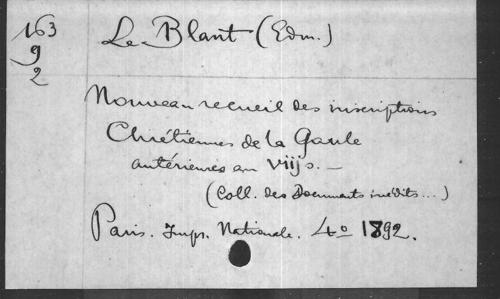 163
9
2
Le Blant (Edm.)
Nouveau recueil des inscriptions
Chrétiennes de la Gaule
antérieures au viijs. —
(Coll. des Documents inédits...)
Paris. Imp. Nationale. 4o 1892.